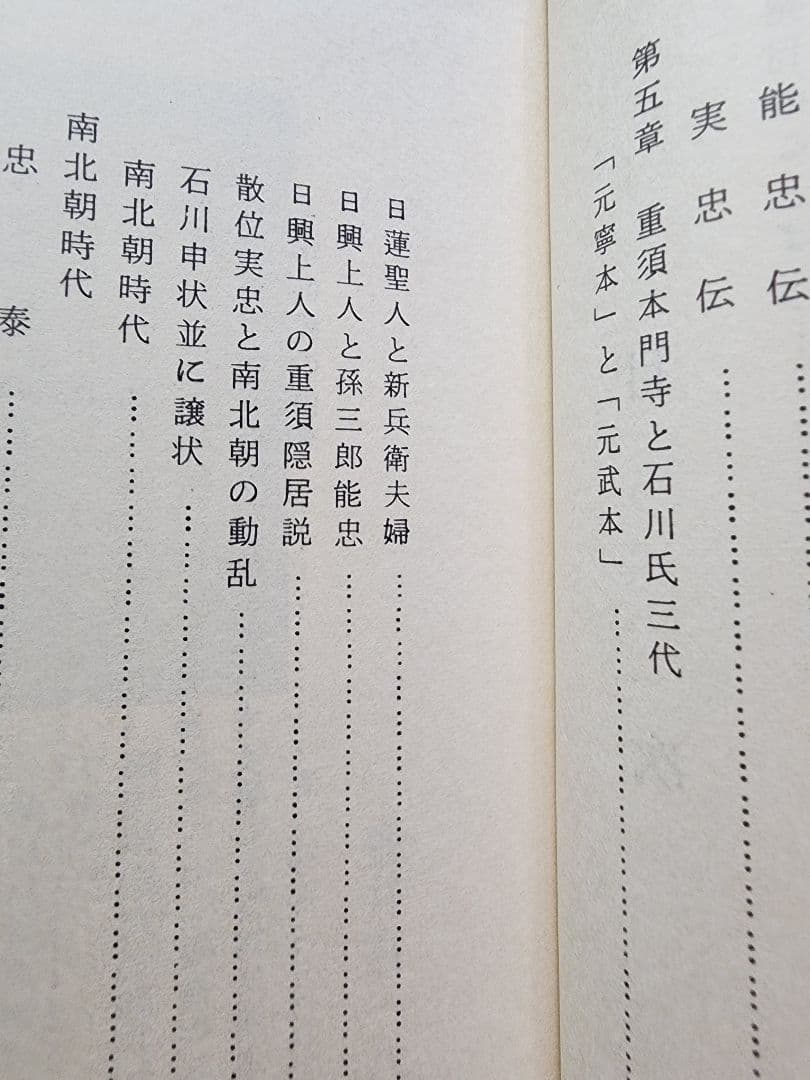 能忠伝
実忠伝
第五章 重須本門寺と石川氏三代
「元寧本」と「元武本」
日蓮聖人と新兵衛夫婦
日興上人と孫三郎能忠
日興上人の重須隠居説
散位実忠と南北朝の動乱
石川申状並に譲状
南北朝時代
南北朝時代
忠泰